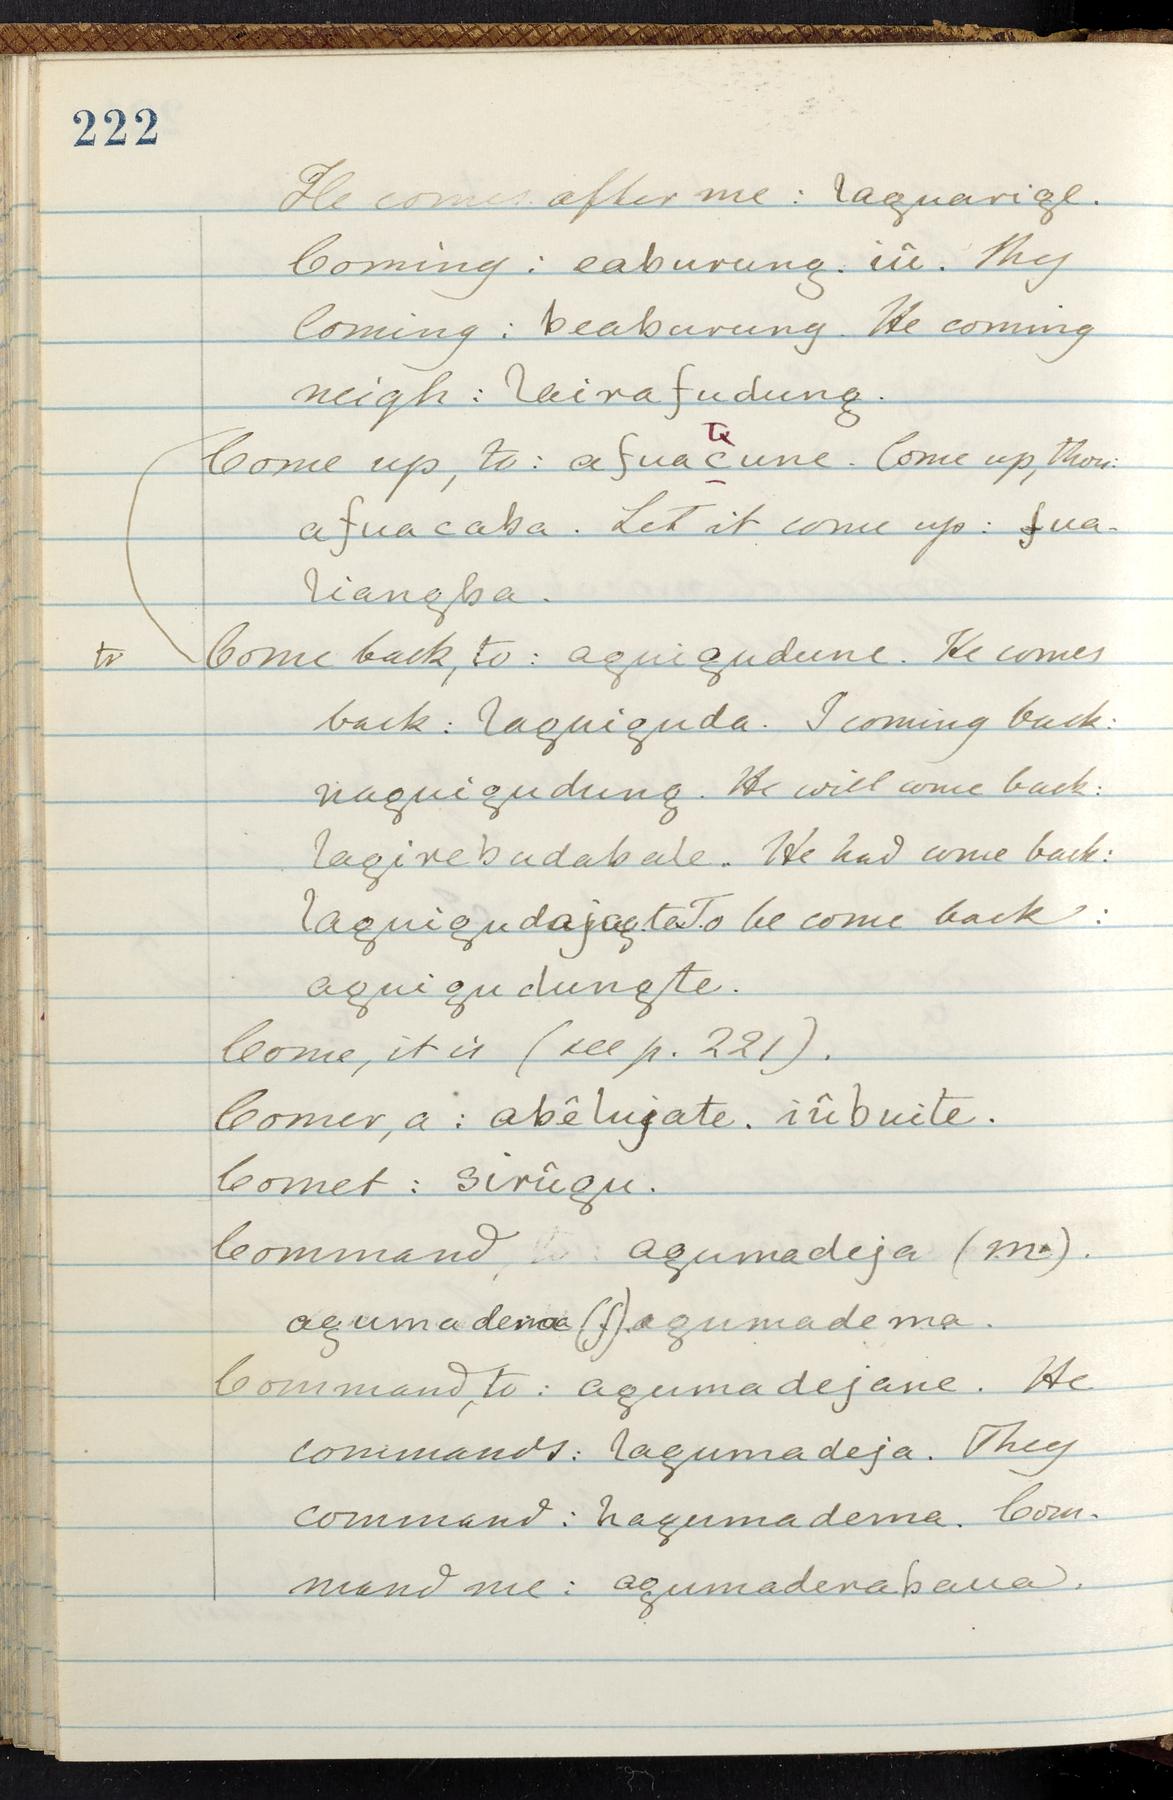 222
He comes after me : laguarigl.
Coming : eaburung. iû. They
coming : beaburung. He coming
neigh : lairafudung.
Come up, to : afuacune. Come up, thou:
afuacaba. Let it come up : fua-
liangba.
tr Come back, to : aguigudune. He comes
back : laguiguda. I coming back:
naguigudung. He will come back:
lagirebudabale. He had come back:
To be come back :
aguigudungte.
Come, it is (see p. 221).
Comer, a : abêlujate. iûbuite.
Comet : sirûgu.
Command, agumadeja (m.).
agumadema (f). agumadema.
Command, to : agumadejane. He
commands : lagumadeja. They
command : hagumadema. Com-
mand me : agumaderabaua.